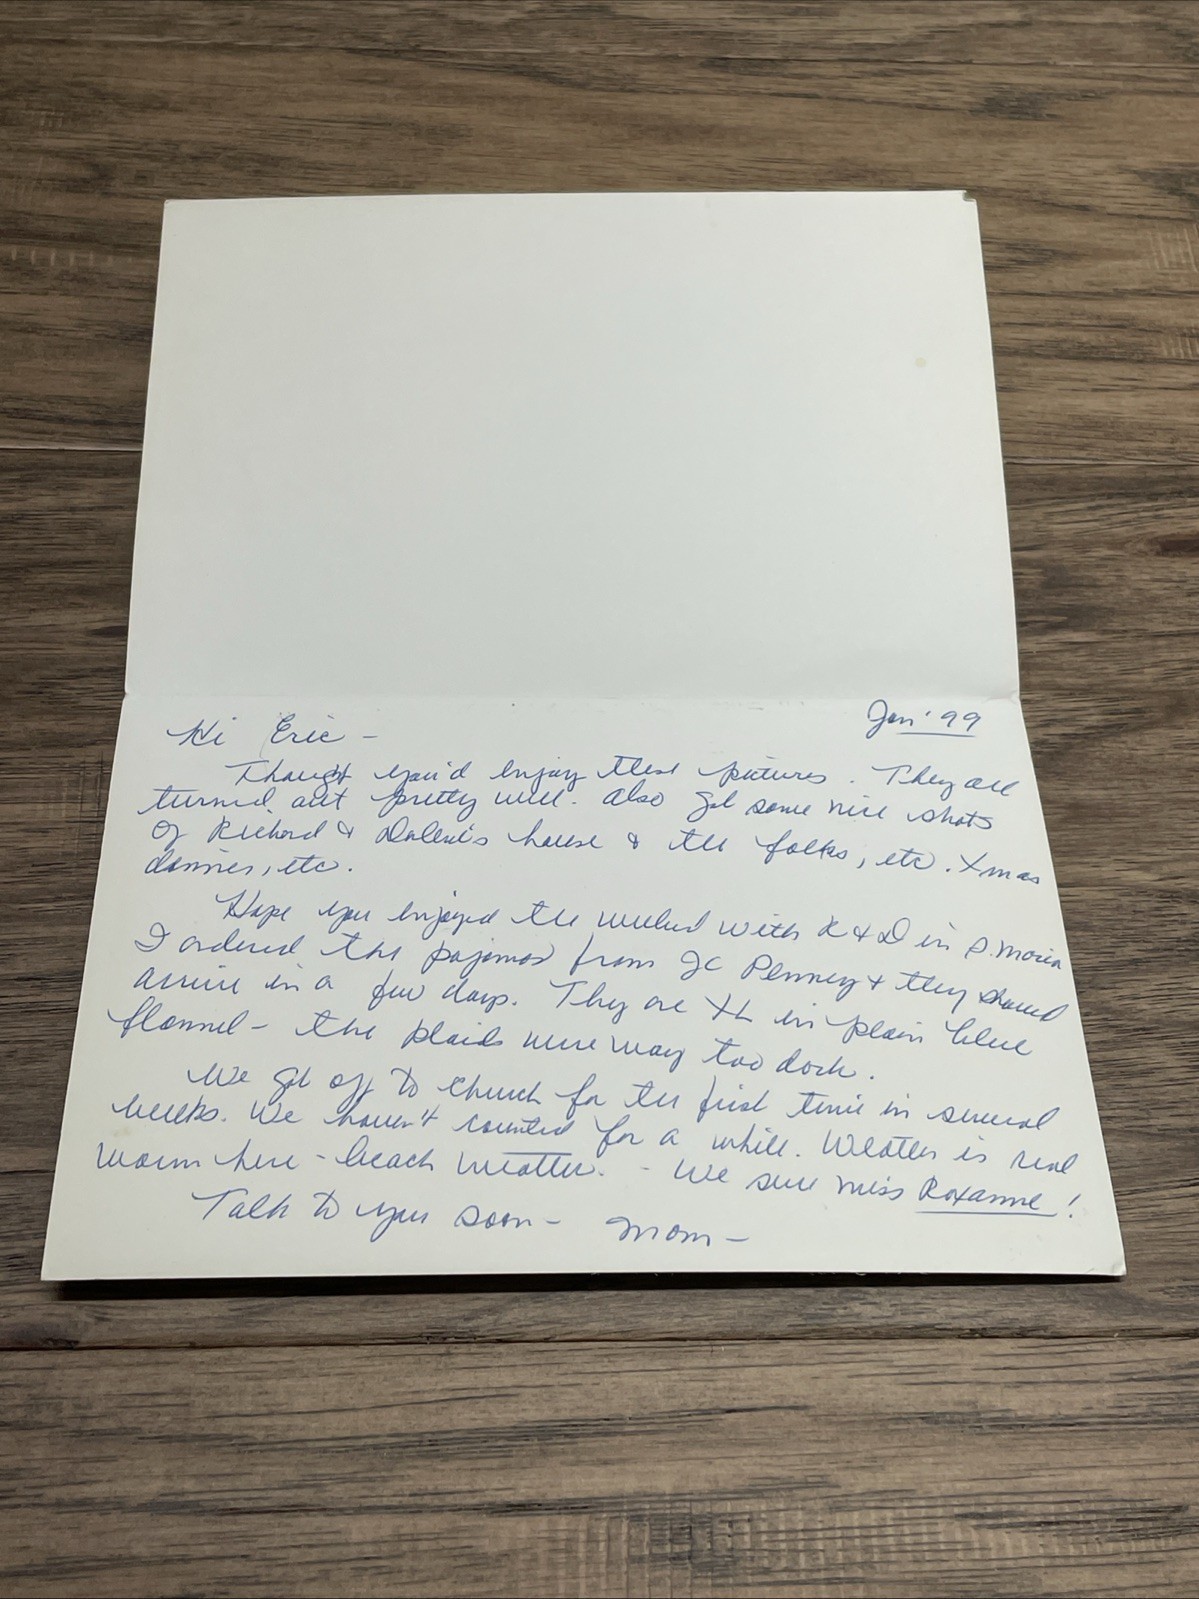 Jan '99
Hi Eric -
Thought you'd enjoy these pictures. They all
turned out pretty well. Also got some nice shots
of Richard & Darlene's house & the folks, etc. Xmas
dinner, etc.
Hope you enjoyed the weekend with R & D in S. Maria
I ordered the pajamas from JC Penney & they should
arrive in a few days. They are XL in plain blue
flannel - the plaids were way too dark.
We got off to church for the first time in several
weeks. We haven't for a while. Weather is real
warm here - beach weather. - We sure miss Roxanne!
Talk to you soon - Mom -